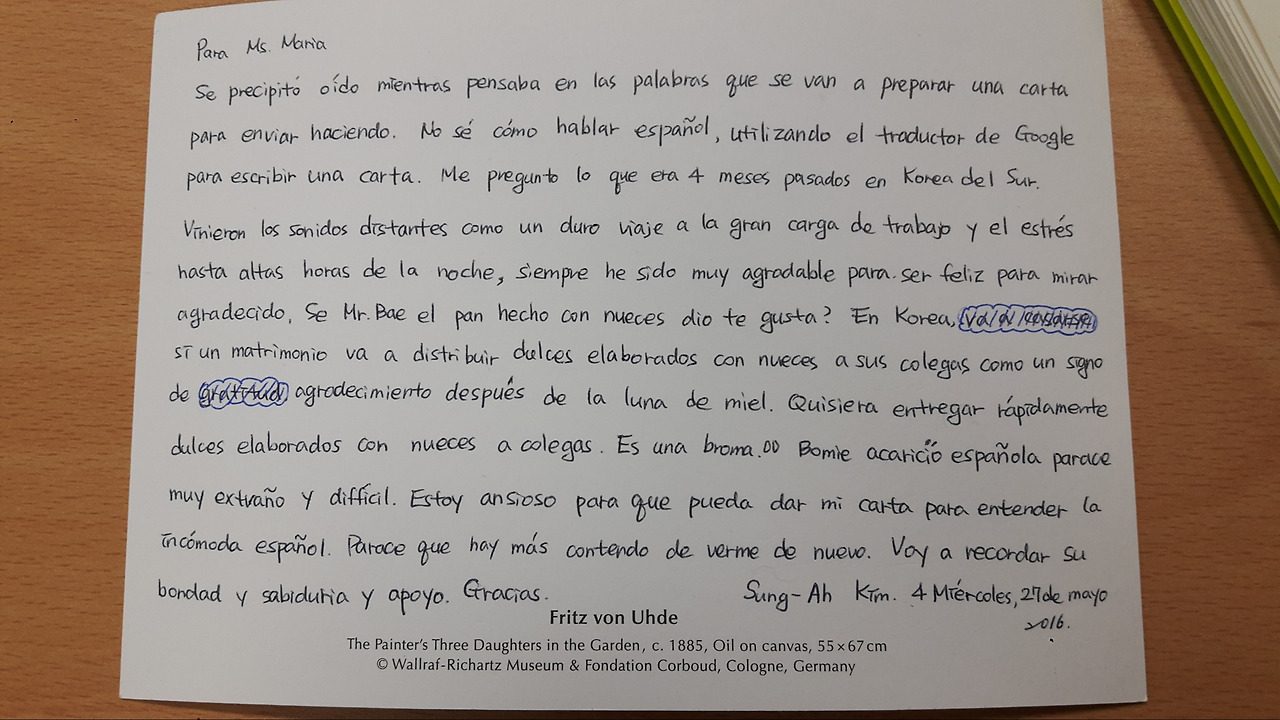 Para Ms. Maria
Se precipitó oído mientras pensaba en las palabras que se van a preparar una carta
para enviar haciendo. No sé cómo hablar español, utilizando el traductor de Google
para escribir una carta. Me pregunto lo que era 4 meses pasados en Korea del Sur.
Vinieron los sonidos distantes como un duro viaje a la gran carga de trabajo y el estrés
hasta altas horas de la noche, siempre he sido muy agradable para ser feliz para mirar
agradecido, Se Mr. Bae el pan hecho con nueces dio te gusta? En Korea,
si un matrimonio va a distribuir dulces elaborados con nueces a sus colegas como un signo
de gratitud agradecimiento después de la luna de miel. Quisiera entregar rápidamente
dulces elaborados con nueces a colegas. Es una broma. Bomie acarició española parace
muy extraño y difícil. Estoy ansioso para que pueda dar mi carta para entender la
incómoda español. Parace que hay más contendo de verme de nuevo. Voy a recordar su
bondad y sabiduria y apoyo. Gracias. Sung-Ah Kim. 4 Miércoles, 27 de mayo
2016.
Fritz von Uhde
The Painter's Three Daughters in the Garden, c. 1885, Oil on canvas, 55 × 67 cm
© Wallraf-Richartz Museum & Fondation Corboud, Cologne, Germany